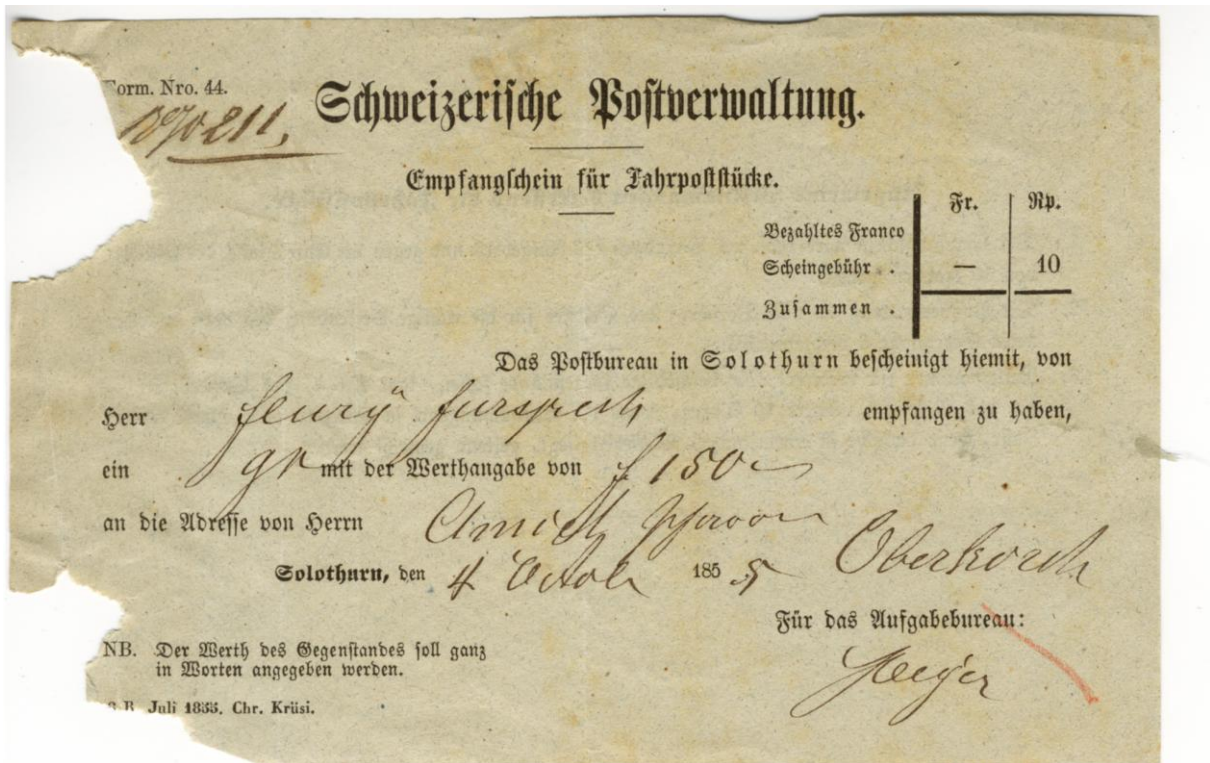 Form. Nro. 44.
Schweizerische Postverwaltung.
Empfangschein für Fahrpoststücke.
Fr. Rp.
Bezahltes Franco
Scheingebühr . — 10
Zusammen .
Das Postbureau in Solothurn bescheinigt hiemit, von
Herr fürsprech empfangen zu haben,
ein gr mit der Werthangabe von f 150
an die Adresse von Herrn
Solothurn, den 4 Octob 1855
Für das Aufgabebureau:
NB. Der Werth des Gegenstandes soll ganz
in Worten angegeben werden.
Juli 1855. Chr. Krüsi.